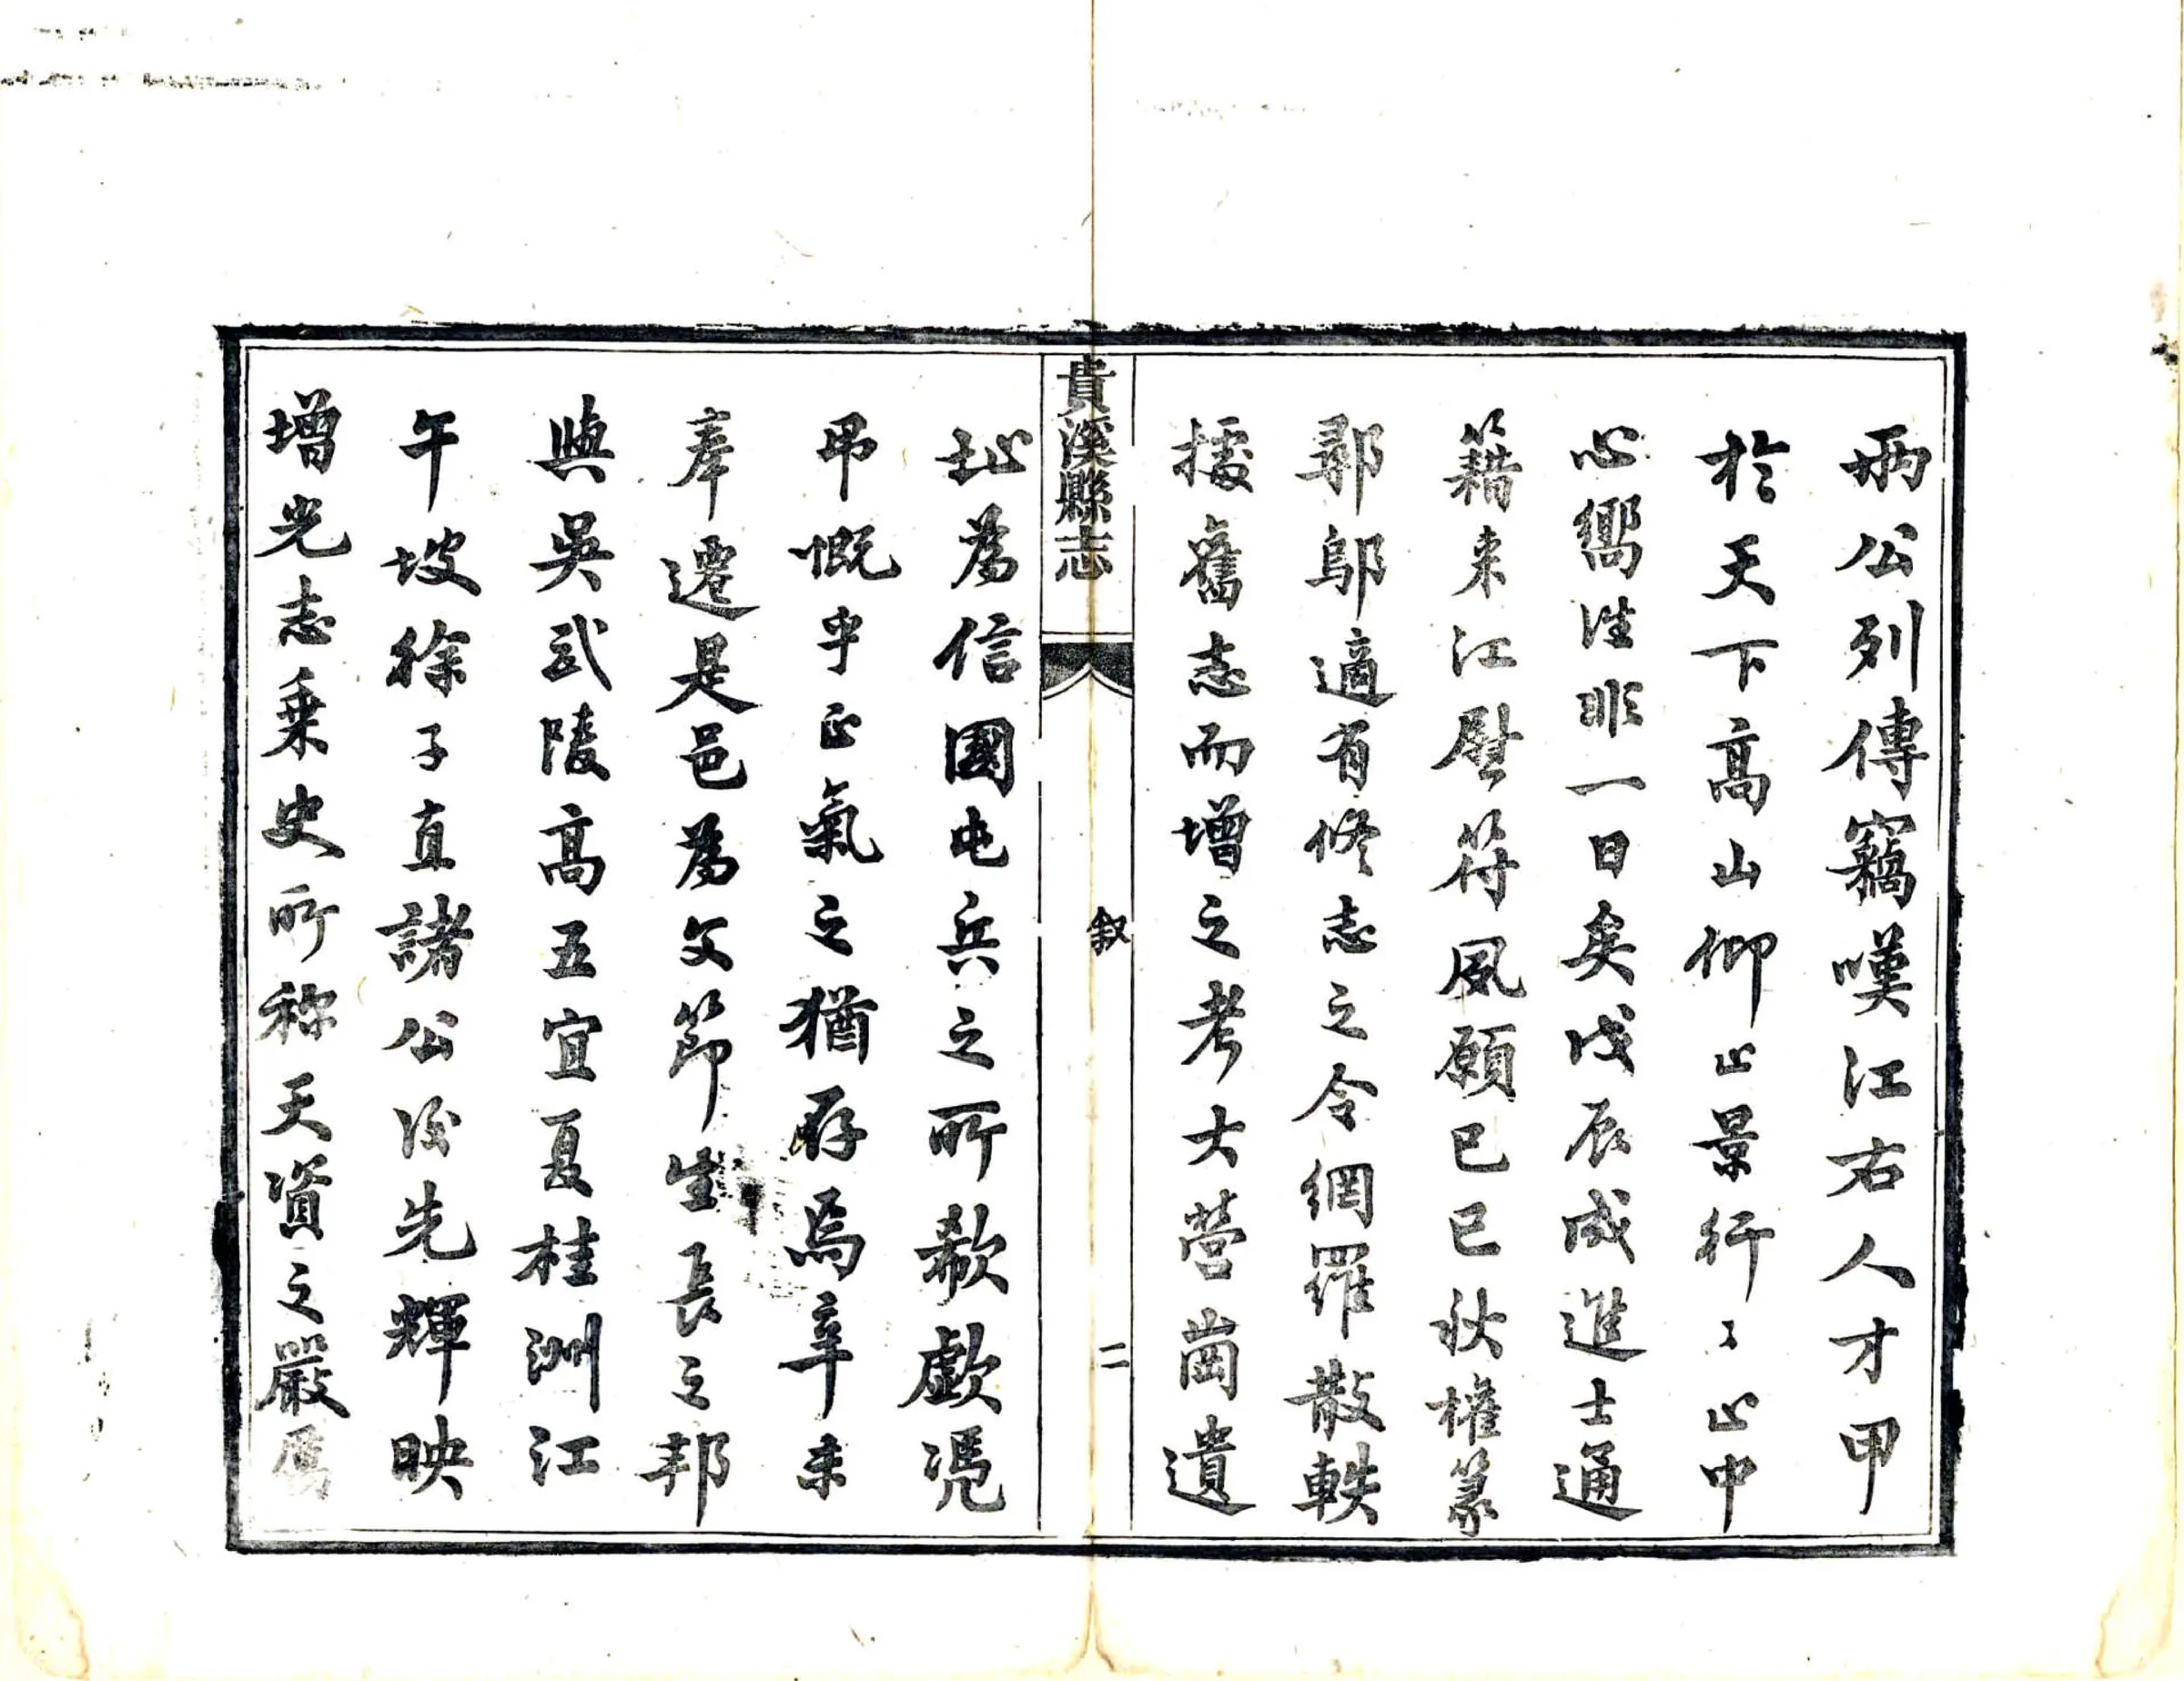 兩公列傳竊嘆江右人才甲
於天下高山仰止景行〻止中
心嚮往非一日矣戊辰成進士通
籍來江慰符夙願己巳秋權篆
鄩鄔適有修志之令網羅散軼
據舊志而增之考大營崗遺
貴溪縣志
叙
二
址為信國屯兵之所欷歔憑
弔慨乎正氣之猶存焉辛未
奉遷是邑為文節生長之邦
與吳武陵高五宜夏桂洲江
午坡徐子直諸公後先輝映
增光志乘史所称天資之嚴厲